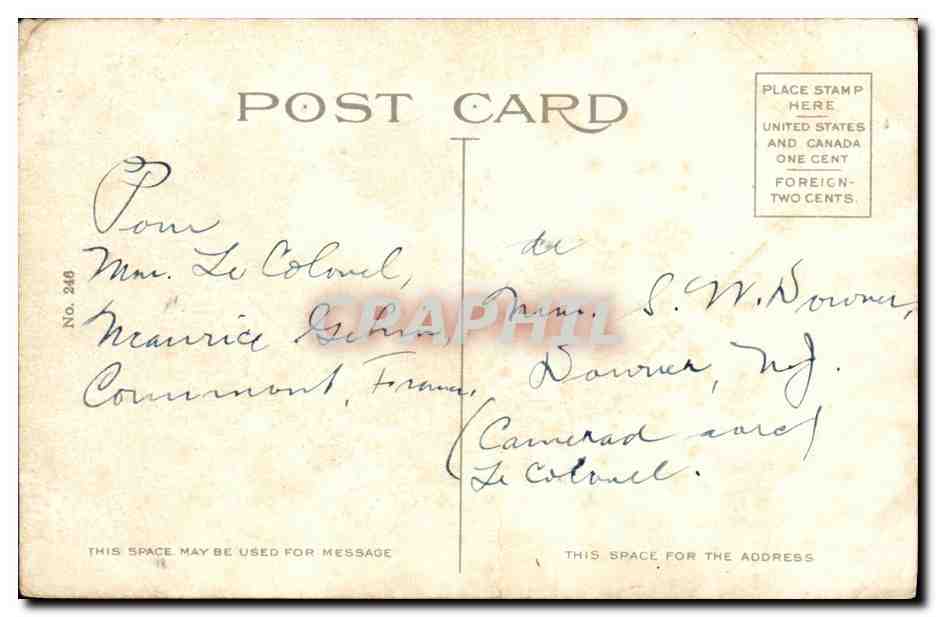 POST CARD
PLACE STAMP
HERE
UNITED STATES
AND CANADA
ONE CENT
FOREIGN-
TWO CENTS.
No. 246
Pour
Mm. Le Colonel,
Maurice
France,
de
Mm. S. W. Downer,
Downer, N.J.
(Camerad avec)
Le Colonel.
CPAPHIL
THIS SPACE MAY BE USED FOR MESSAGE
THIS SPACE FOR THE ADDRESS